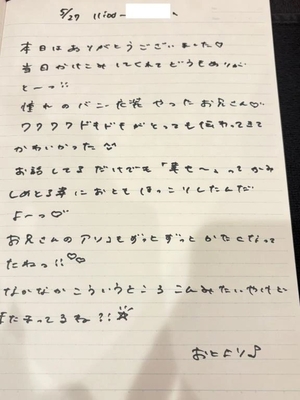 5/27 11:00-
本日はありがとうございました♡
当日かけこみしてくれてどうもありが
とーっ!!
憧れのバニー衣装やったお兄さん♡
ワクワクドキドキがとっても伝わってきて
かわいかった
お話してるだけでも「幸せ〜」ってかみ
しめとる姿におともほっこりしたんだ
よーっ♡
お兄さんのアソコもずっとずっとかたくなって
たねっ!!♡♡
なかなかこういうところこんみたいやけど
また待ってるね?!☆
おとより♪